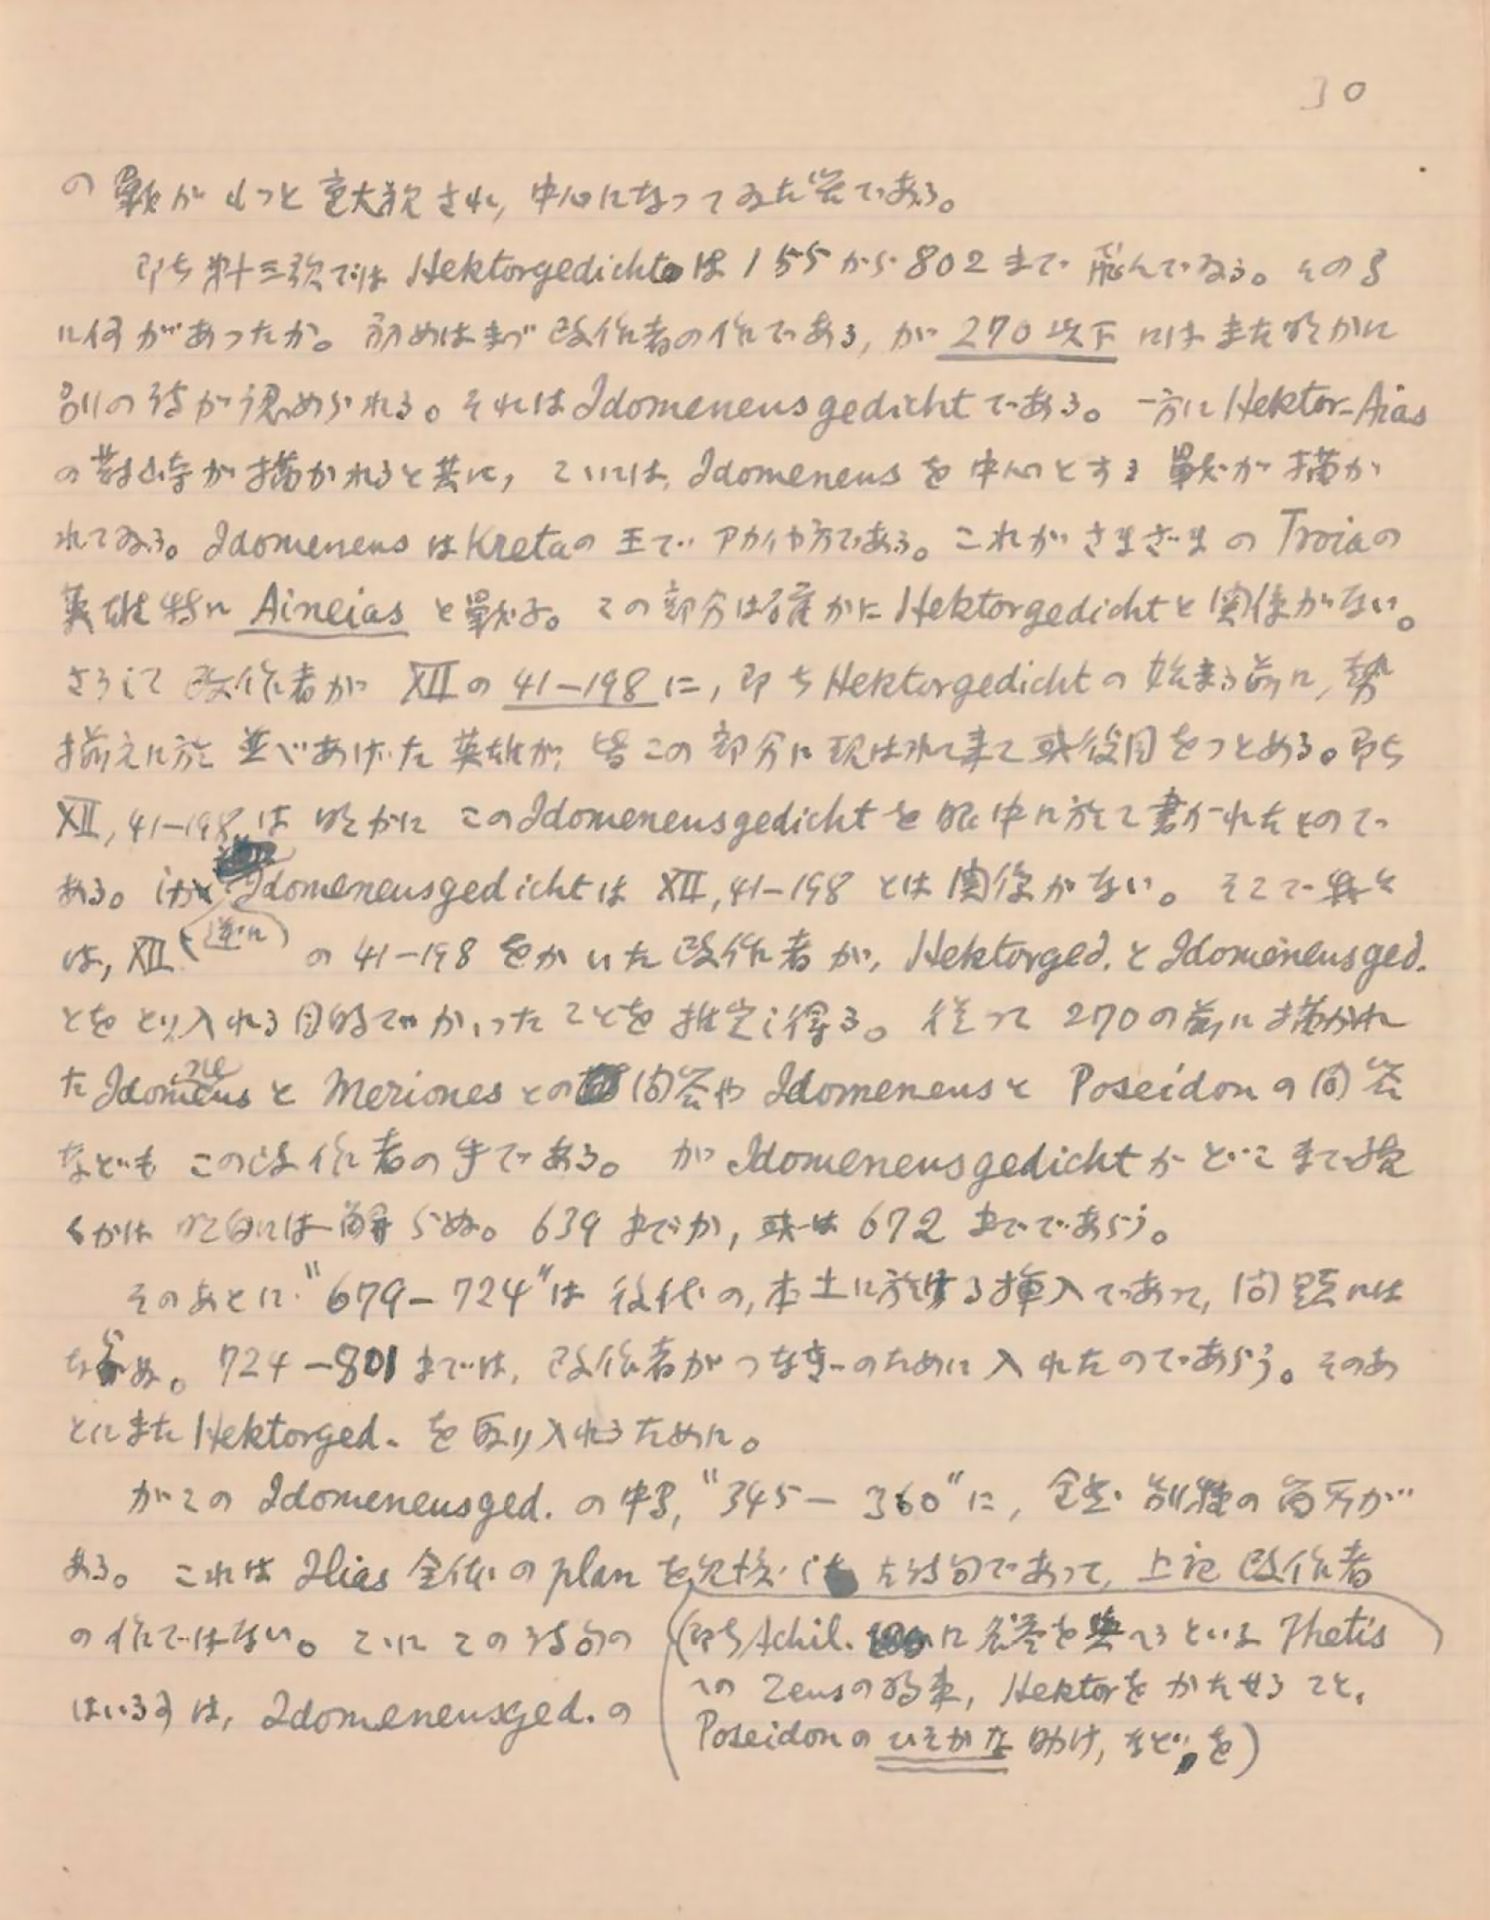 30
の戰がもっと重大視され, 中心になってゐた筈である。
即ち第十三歌では Hektorgedicht は 155から802まで飛んでゐる。その間
に何があったか。初めはまづ改作者の作である, が 270以下 にはまた明かに
別の詩が認められる。それはIdomeneusgedichtである。一方にHektor-Aias
の對峙が描かれると共に, こゝには, Idomeneusを中心とする戰が描か
れてゐる。IdomeneusはKretaの王で アカイヤ方である。これがさまざまの Troiaの
英雄特に Aineias と戰ふ。この部分は確かにHektorgedichtと関係がない。
さうして改作者が XIIの 41-198に, 即ちHektorgedichtの始まる前に, 勢
揃えに於て並べあげた英雄が, 皆この部分に現はれて来て或役目をつとめる。即ち
XII, 41-198は明かに このIdomeneusgedichtを眼中に於て書かれたもので
ある。が逆に Idomeneusgedichtは XII, 41-198 とは関係がない。そこで我々
は, XII の 41-198をかいた改作者が, Hektorged. と Idomeneusged.
とをとり入れる目的でかいったことを推定し得る。従って 270の前に描かれ
た Idomeneusと Merionesとの問答や Idomeneusと Poseidonの問答
なども この改作者の手である。が Idomeneusgedichtがどこまで続
くかは明白には解らぬ。639までか, 或は672までであらう。
そのあとに "679-724"は後代の, 本土に於ける挿入であって, 問題には
ならぬ。724-801までは, 改作者がつなぎのために入れたのであらう。そのあ
とにまた Hektorged. を取り入れるために。
がこの Idomeneusged. の中間, "345-360"に, 全然別種の箇所が
ある。これは Ilias 全体の plan を した詩句であって, 上記改作者
の作ではない。こゝに この詩句の
はいるのは, Idomeneusged. の
(即ちAchil. に名誉を與へるといふ Thetis
への Zeusの約束, Hektorをかたせること,
Poseidonの ひそかな 助け, などを)